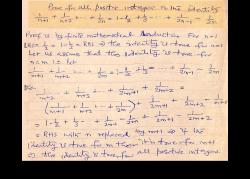 Prove for all positive integers n the identity
1/(n+1) + 1/(n+2) + ... + 1/2n = 1 - 1/2 + 1/3 - ... + 1/(2n-1) - 1/2n
Proof is by finite mathematical induction For n=1
LHS = 1/2 = 1 - 1/2 = RHS ⇒ the identity is true for n=1
Let us assume that the identity is true for
n = m i.e. let
1/(m+1) + 1/(m+2) + ... + 1/2m = 1 - 1/2 + 1/3 - ... + 1/(2m-1) - 1/2m
1/(m+2) + ... + 1/2m + 1/(2m+1) + 1/(2m+2)
(1/(m+1) + 1/(m+2) + ... + 1/2m) + 1/(2m+1)
= 1 - 1/2 + 1/3 - ... + 1/(2m-1) - 1/2m + 1/(2m+1)
= RHS with n replaced by m+1 ⇒ if the
identity is true for m then it is true for m+1
⇒ the identity is true for all positive integers